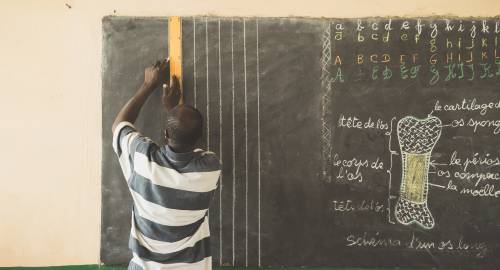 a b c d e f g h i j k l
a b c d e f g h i j k l
A B C D E F G H I J K L
A B C D E F G H I J K L
le cartilage d
os spong
tête de l'os
le corps de
l'os
le périos
os compac
la moelle
tête de l'os
Schéma d'un os long